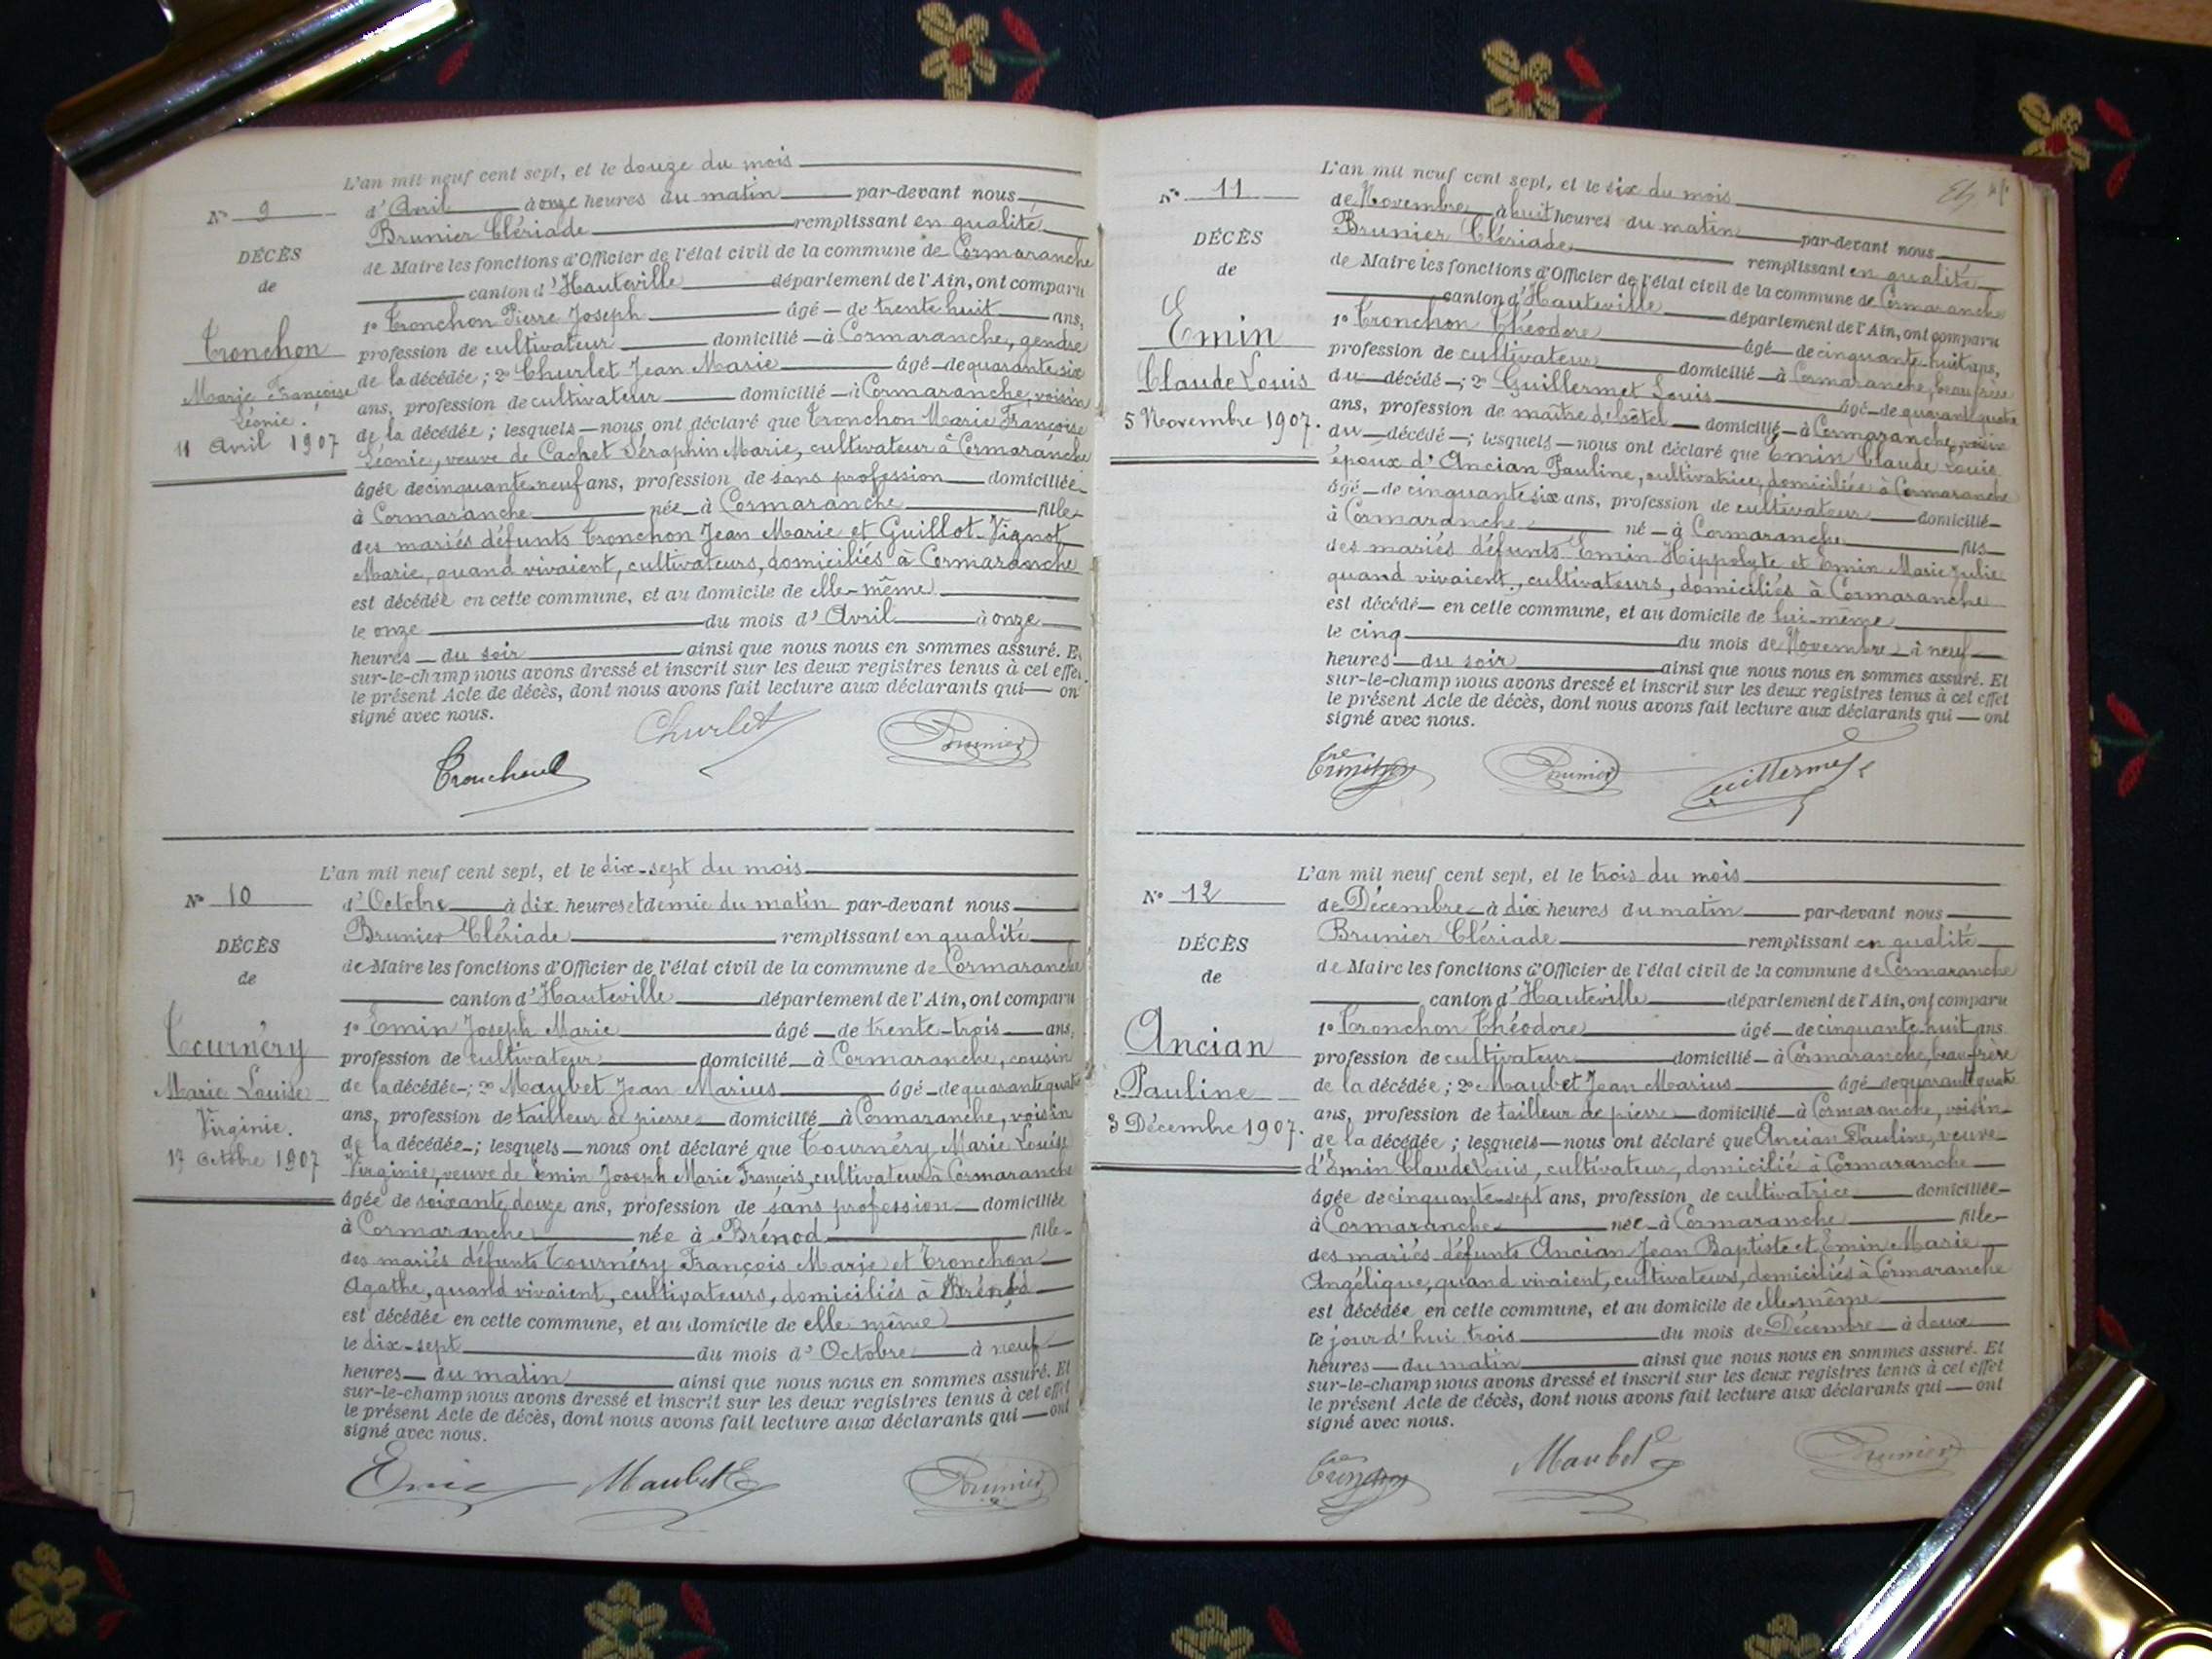 L'an mil neuf cent sept, et le douze du mois
N° 9
d'Avril à onze heures du matin par-devant nous
Brunier Clériade remplissant en qualité
DÉCÈS
de Maire les fonctions d'Officier de l'état civil de la commune de Cormaranche
de
canton d'Hauteville département de l'Ain, ont comparu
1° Tronchon Pierre Joseph âgé de trente huit ans,
Tronchon
profession de cultivateur domicilié à Cormaranche, gendre
Marie Françoise
de la décédée; 2° Churlet Jean Marie âgé de quarante six
Léonie.
ans, profession de cultivateur domicilié à Cormaranche, voisin
11 Avril 1907
de la décédée; lesquels nous ont déclaré que Tronchon Marie Françoise
Léonie, veuve de Cachet Séraphin Marie, cultivateur à Cormaranche
âgée de cinquante neuf ans, profession de sans profession domiciliée
à Cormaranche née à Cormaranche fille
des mariés défunts Tronchon Jean Marie et Guillot-Vignot
Marie, quand vivaient, cultivateurs, domiciliés à Cormaranche
est décédée en cette commune, et au domicile de elle-même
le onze du mois d'Avril à onze
heures du soir ainsi que nous nous en sommes assuré. E
sur-le-champ nous avons dressé et inscrit sur les deux registres tenus à cel effe
le présent Acte de décès, dont nous avons fait lecture aux déclarants qui on
signé avec nous.
Churlet
Brunier
L'an mil neuf cent sept, et le dix-sept du mois
N° 10
d'Octobre à dix heures et demie du matin par-devant nous
Brunier Clériade remplissant en qualité
DÉCÈS
de Maire les fonctions d'Officier de l'état civil de la commune de Cormaranche
de
canton d'Hauteville département de l'Ain, ont comparu
1° Emin Joseph Marie âgé de trente-trois ans,
Tournéry
profession de cultivateur domicilié à Cormaranche, cousin
Marie Louise
de la décédée; 2° Maubet Jean Marius âgé de quarante quatre
Virginie.
ans, profession de tailleur de pierre domicilié à Cormaranche, voisin
17 Octobre 1907
de la décédée; lesquels nous ont déclaré que Tournéry Marie Louise
Virginie, veuve de Emin Joseph Marie François, cultivateur à Cormaranche
âgée de soixante douze ans, profession de sans profession domiciliée
à Cormaranche née à Brénod fille
des mariés défunts Tournéry François Marie et Tronchon
Agathe, quand vivaient, cultivateurs, domiciliés à Brénod
est décédée en cette commune, et au domicile de elle même
le dix-sept du mois d'Octobre à neuf
heures du matin ainsi que nous nous en sommes assuré. Et
sur-le-champ nous avons dressé et inscrit sur les deux registres tenus à cel effet
le présent Acte de décès, dont nous avons fait lecture aux déclarants qui ont
signé avec nous.
Emin Maubet Brunier
L'an mil neuf cent sept, et le six du mois
N° 11
de Novembre à huit heures du matin par-devant nous
Brunier Clériade remplissant en qualité
DÉCÈS
de Maire les fonctions d'Officier de l'état civil de la commune de Cormaranche
de
canton d'Hauteville département de l'Ain, ont comparu
1° Tronchon Théodore âgé de cinquante huit ans,
Emin
profession de cultivateur domicilié à Cormaranche, beau frère
Claude Louis
du décédé; 2° Guillermet Louis âgé de quarante quatre
5 Novembre 1907.
ans, profession de maître d'hôtel domicilié à Cormaranche, voisin
du décédé; lesquels nous ont déclaré que Emin Claude Louis
époux d'Ancian Pauline, cultivatrice, domiciliée à Cormaranche
âgé de cinquante six ans, profession de cultivateur domicilié
à Cormaranche né à Cormaranche fils
des mariés défunts Emin Hippolyte et Emin Marie Julie
quand vivaient, cultivateurs, domiciliés à Cormaranche
est décédé en cette commune, et au domicile de lui-même
le cinq du mois de Novembre à neuf
heures du soir ainsi que nous nous en sommes assuré. Et
sur-le-champ nous avons dressé et inscrit sur les deux registres tenus à cel effet
le présent Acte de décès, dont nous avons fait lecture aux déclarants qui ont
signé avec nous.
Tronchon Brunier Guillermet
L'an mil neuf cent sept, et le trois du mois
N° 12
de Décembre à dix heures du matin par-devant nous
Brunier Clériade remplissant en qualité
DÉCÈS
de Maire les fonctions d'Officier de l'état civil de la commune de Cormaranche
de
canton d'Hauteville département de l'Ain, ont comparu
1° Tronchon Théodore âgé de cinquante huit ans
Ancian
profession de cultivateur domicilié à Cormaranche, beau frère
Pauline
de la décédée; 2° Maubet Jean Marius âgé de quarante quatre
3 Décembre 1907.
ans, profession de tailleur de pierre domicilié à Cormaranche, voisin
de la décédée; lesquels nous ont déclaré que Ancian Pauline, veuve
d'Emin Claude Louis, cultivateur, domicilié à Cormaranche
âgée de cinquante-sept ans, profession de cultivatrice domiciliée
à Cormaranche née à Cormaranche fille
des mariés défunts Ancian Jean Baptiste et Emin Marie
Angélique, quand vivaient, cultivateurs, domiciliés à Cormaranche
est décédée en cette commune, et au domicile de elle-même
le jourd'hui trois du mois de Décembre à deux
heures du matin ainsi que nous nous en sommes assuré. Et
sur-le-champ nous avons dressé et inscrit sur les deux registres tenus à cel effet
le présent Acte de décès, dont nous avons fait lecture aux déclarants qui ont
signé avec nous.
Tronchon Maubet Brunier